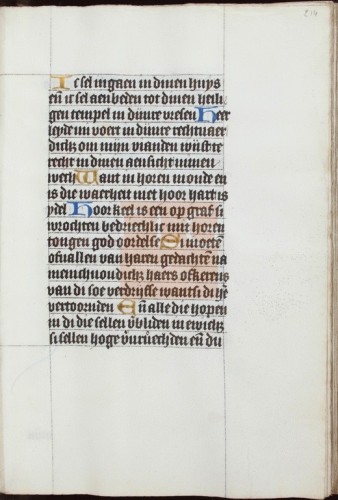 214
Ic sel ingaen in dinen huys
en̄ ic sel aenbeden tot dinen heili
gen tempel in dinre vresen Heer
leyde mi voert in dinre rechtuaer
dich; om mijn vianden
recht in dinen aensicht minen
wech Want in horen monde en
is die waerheit niet hoor hart is
ydel Hoor keel is een op graf si
wrochten bedriechlic mit horen
tongen god oordelse Si moeten
ofuallen van haren gedachten̄ na
menichuoudich; haers
van di soe verdrijfse want si di he͞
vertoornden En̄ alle die hopen
in di die sellen v̄bliden in ewich;
si sellen hoge en̄ du